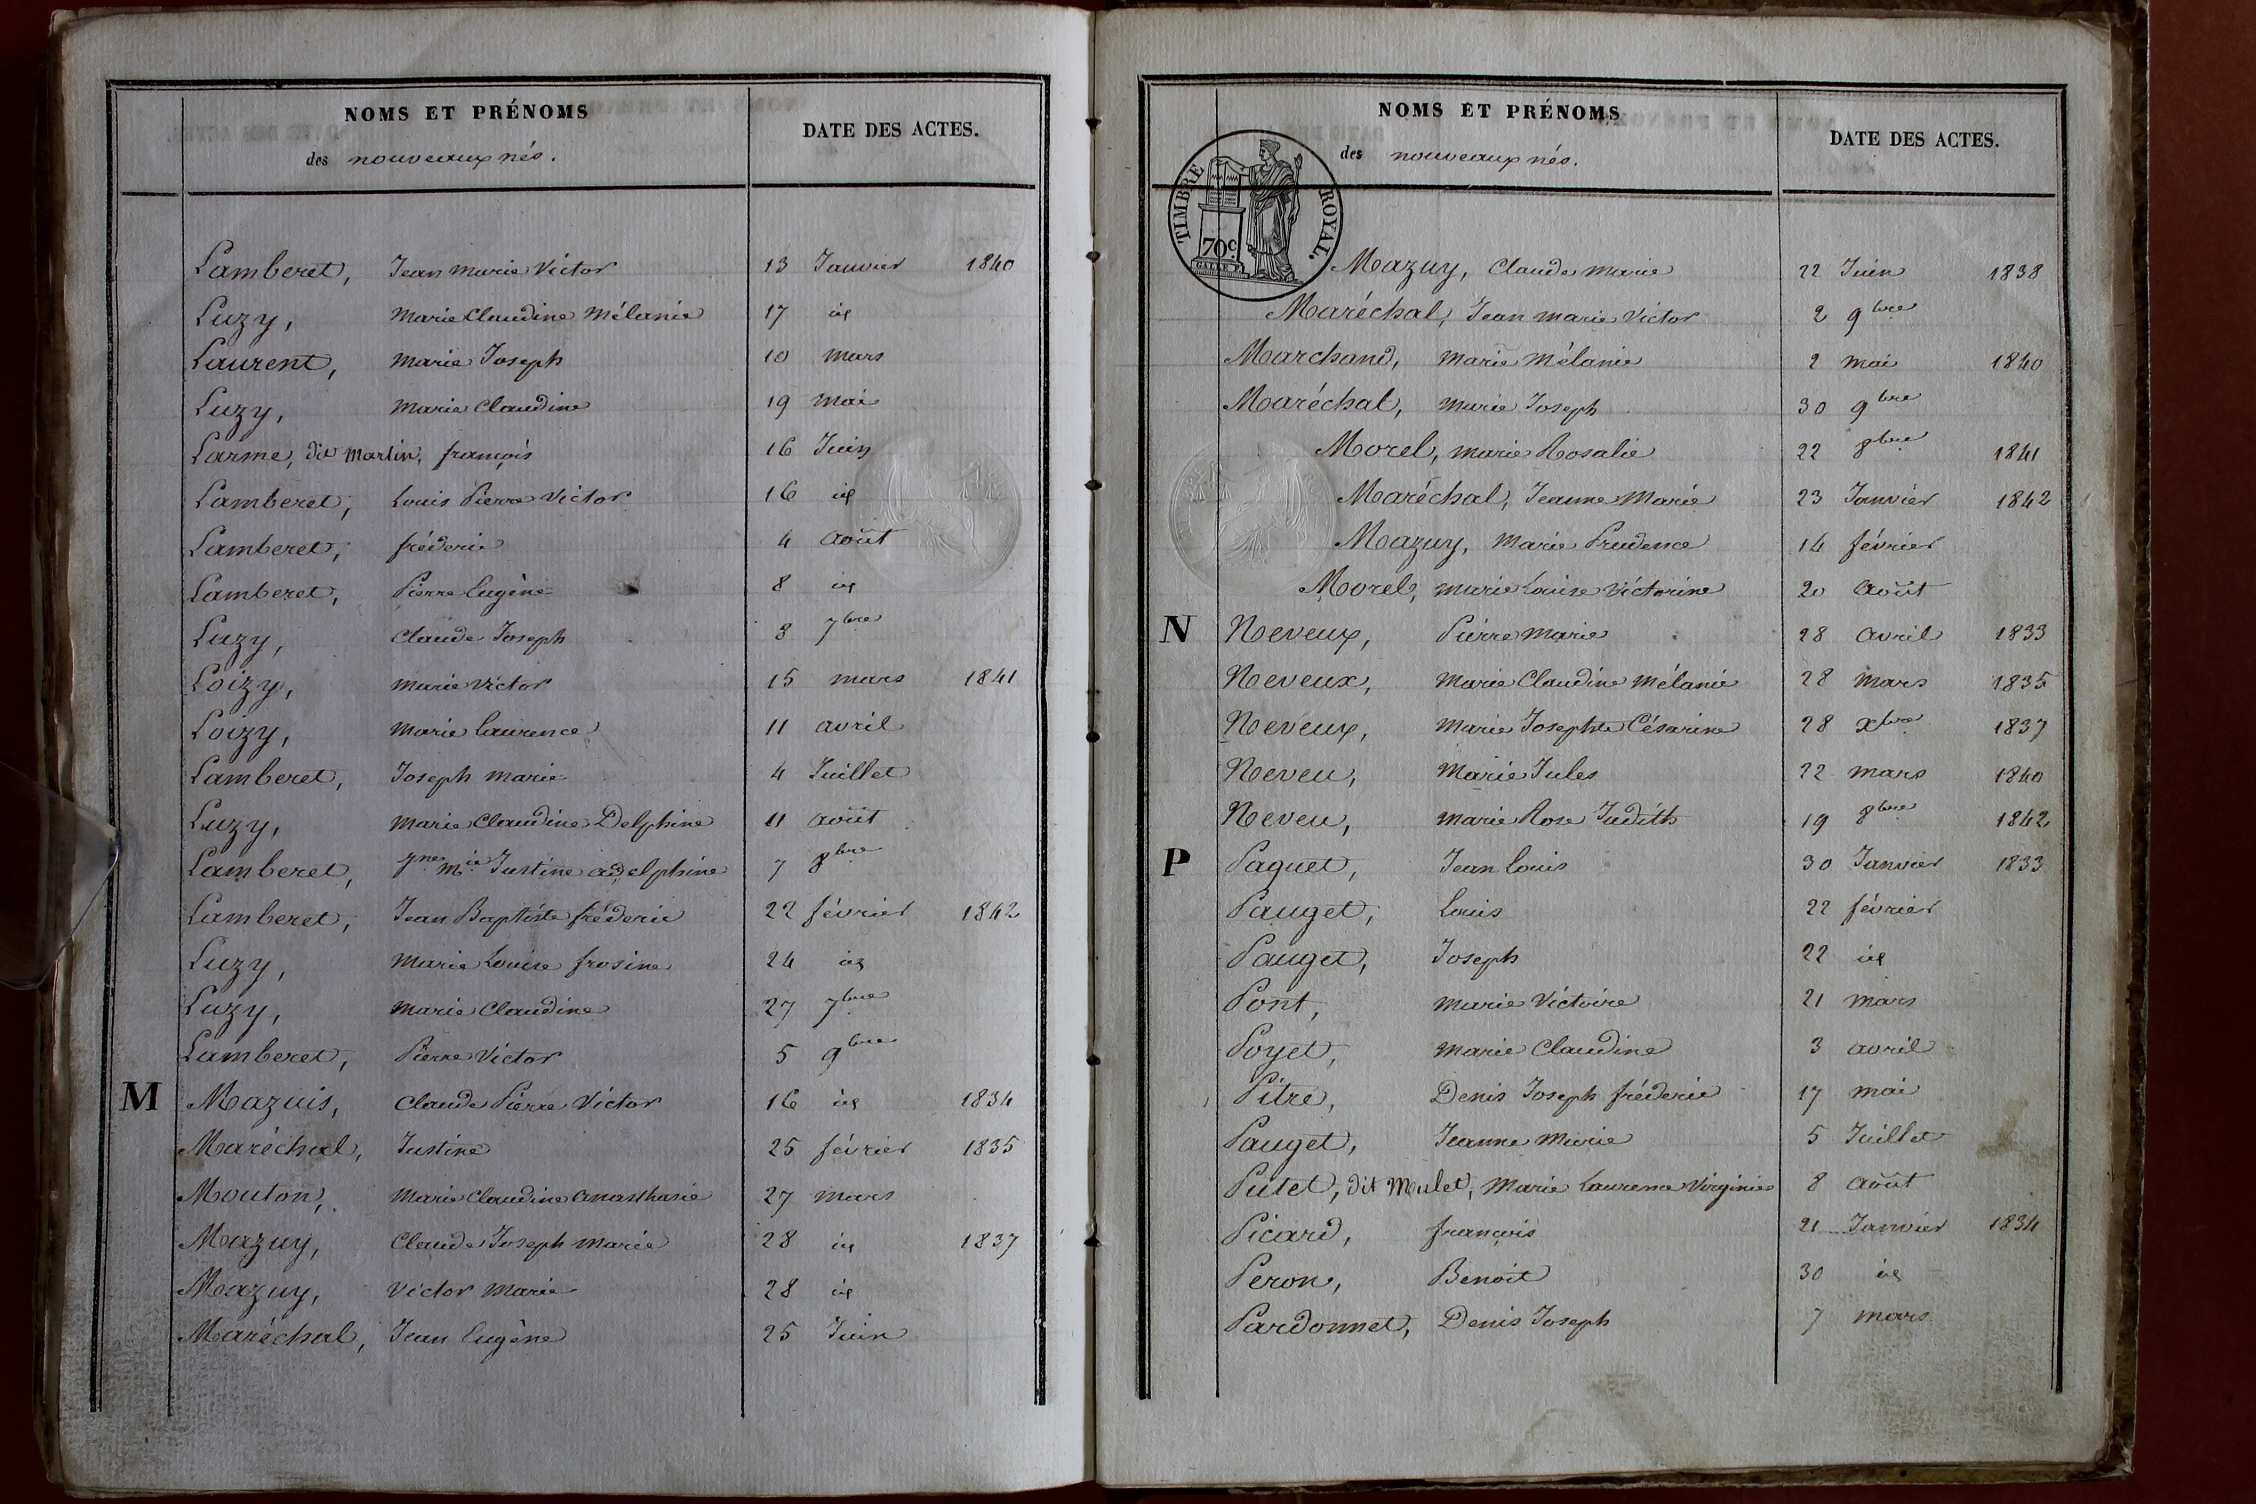 NOMS ET PRÉNOMS
des nouveaux nés.
DATE DES ACTES.
Lamberet, Jean Marie Victor 13 Janvier 1840
Luzy, Marie Claudine Mélanie 17 id
Laurent, Marie Joseph 10 mars
Luzy, Marie Claudine 19 mai
Larme, dit Martin, françois 16 Juin
Lamberet, Louis Pierre Victor 16 id
Lamberet, fréderic 4 août
Lamberet, Pierre Eugène 8 id
Luzy, Claude Joseph 8 7bre
Loizy, Marie Victor 15 mars 1841
Loizy, Marie Laurence 11 avril
Lamberet, Joseph Marie 4 Juillet
Luzy, Marie Claudine Delphine 11 août
Lamberet, Jne Mie Justine adelphine 7 8bre
Lamberet, Jean Baptiste fréderic 22 février 1842
Luzy, Marie Louise frosine 24 id
Luzy, Marie Claudine 27 7bre
Lamberet, Pierre Victor 5 9bre
M Mazuis, Claude Pierre Victor 16 id 1834
Maréchal, Justine 25 février 1835
Mouton, Marie Claudine anasthasie 27 mars
Mazuy, Claude Joseph Marie 28 id 1837
Mazuy, Victor Marie 28 id
Maréchal, Jean Eugène 25 Juin
NOMS ET PRÉNOMS
des nouveaux nés.
DATE DES ACTES.
TIMBRE ROYAL.
70c.
Mazuy, Claude Marie 22 Juin 1838
Maréchal, Jean Marie Victor 2 9bre
Marchand, Marie Mélanie 2 mai 1840
Maréchal, Marie Joseph 30 9bre
Morel, Marie Rosalie 22 8bre 1841
Maréchal, Jeanne Marie 23 Janvier 1842
Mazuy, Marie Prudence 14 février
Morel, Marie Louise Victorine 20 août
N Neveux, Pierre Marie 28 avril 1833
Neveux, Marie Claudine Mélanie 28 mars 1835
Neveux, Marie Josephte Césarine 28 Xbre 1837
Neveu, Marie Jules 22 mars 1840
Neveu, Marie Rose Judith 19 8bre 1842
P Paquet, Jean Louis 30 Janvier 1833
Pauget, Louis 22 février
Pauget, Joseph 22 id
Pont, Marie Victoire 21 mars
Poyet, Marie Claudine 3 avril
Pitre, Denis Joseph fréderic 17 mai
Pauget, Jeanne Marie 5 Juillet
Putet, dit Mulet, Marie Laurence Virginie 8 août
Picard, françois 21 Janvier 1834
Peron, Benoit 30 id
Pardonnet, Denis Joseph 7 mars